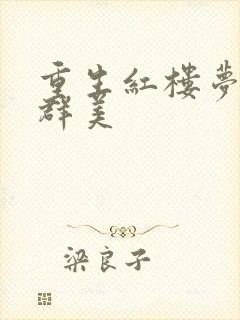 重生紅樓夢
群美
梁良子